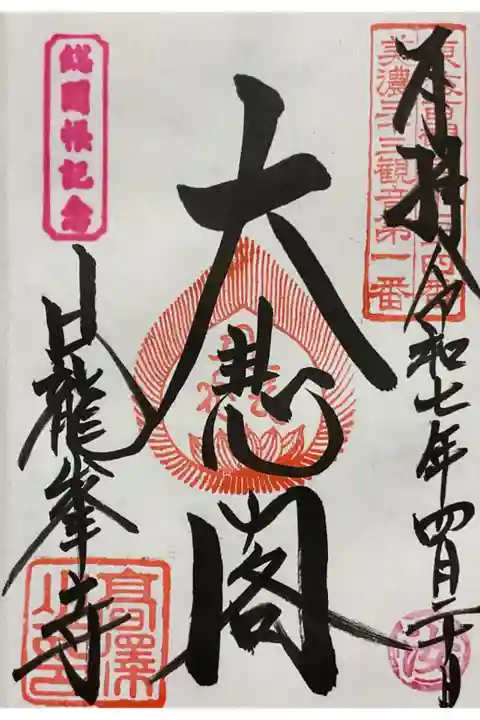 奉拝 令和七年四月二十日
美濃卅三観音第一番
大悲閣
総開帳記念
日龍峯寺
高澤